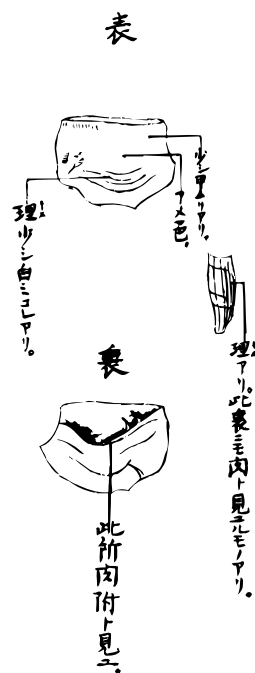 表
少シ黒ミアリ。
アメ色。
理少シ白ミコレアリ。
理アリ。此裏ニモ肉ト見ユルモノアリ。
裏
此所肉附ト見ユ。